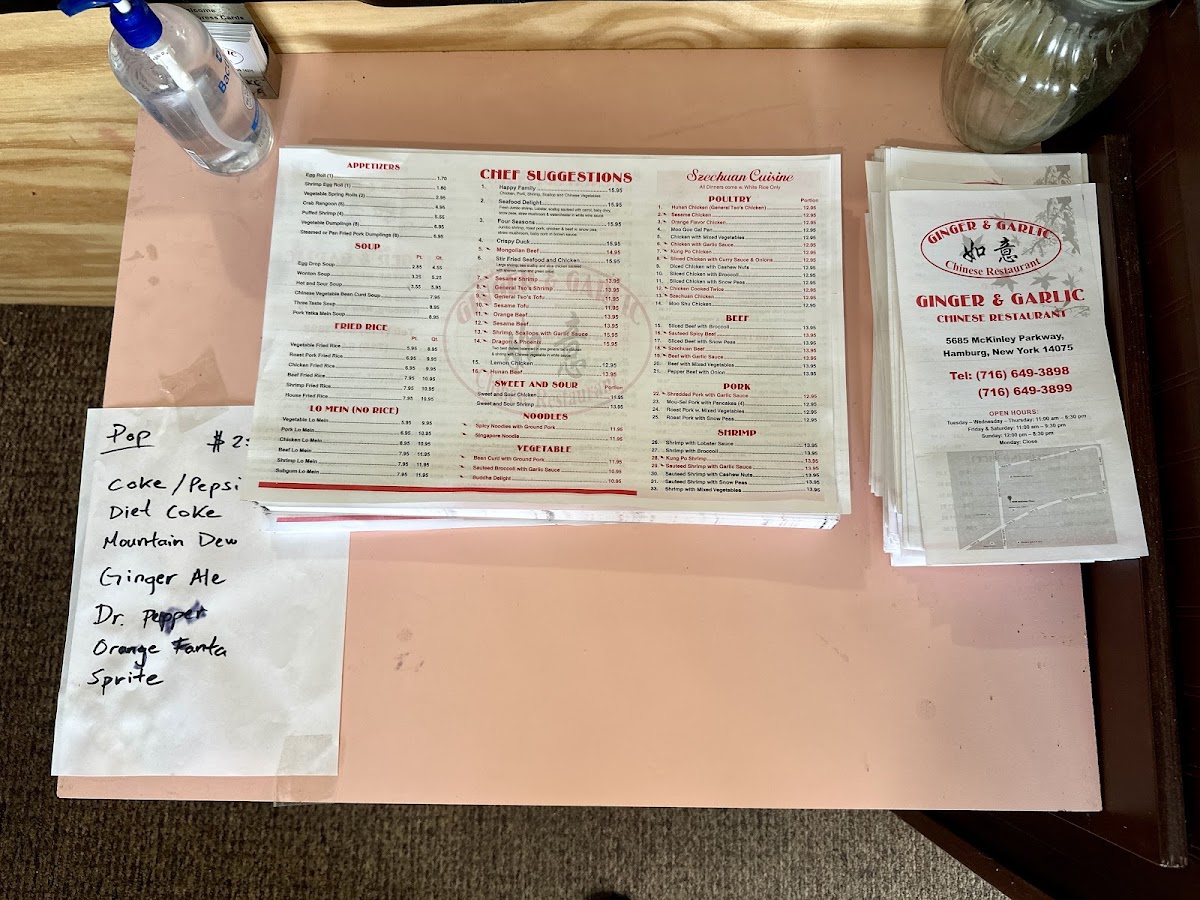 Welcome
ress Cards
APPETIZERS
Egg Roll (1) 1.70
Shrimp Egg Roll (1) 1.80
Vegetable Spring Rolls (2) 2.95
Crab Rangoon (6)
Puffed Shrimp (4) 5.55
Vegetable Dumplings (8) 6.95
Steamed or Pan Fried Pork Dumplings (8) 6.95
SOUP
Pt. Qt.
Egg Drop Soup 2.85 4.55
Wonton Soup 3.25 5.25
Hot and Sour Soup 3.55 5.95
Chinese Vegetable Bean Curd Soup 7.95
Three Taste Soup 8.95
Pork Yatka Mein Soup 8.95
FRIED RICE
Pt. Qt.
Vegetable Fried Rice 5.95 8.95
Roast Pork Fried Rice 6.95 9.95
Chicken Fried Rice 6.95 9.95
Beef Fried Rice 7.95 10.95
Shrimp Fried Rice 7.95 10.95
House Fried Rice 7.95 10.95
LO MEIN (NO RICE)
Vegetable Lo Mein 5.95 9.95
Pork Lo Mein 6.95 10.95
Chicken Lo Mein 6.95 10.95
Beef Lo Mein 7.95 11.95
Shrimp Lo Mein 7.95 11.95
Subgum Lo Mein 7.95 11.95
CHEF SUGGESTIONS
1. Happy Family 15.95
Chicken, Pork, Shrimp, Scallop and Chinese Vegetables
2. Seafood Delight 15.95
3. Four Seasons 15.95
4. Crispy Duck 16.95
5. Mongolian Beef 14.95
6. Stir Fried Seafood and Chicken 15.95
7. Sesame Shrimp 13.95
8. General Tso's Shrimp 13.95
9. General Tso's Tofu 11.95
10. Sesame Tofu 11.95
11. Orange Beef 13.95
12. Sesame Beef 13.95
13. Shrimp, Scallops with Garlic Sauce 15.95
14. Dragon & Phoenix 15.95
15. Lemon Chicken 12.95
16. Hunan Beef 13.95
SWEET AND SOUR
Portion
Sweet and Sour Chicken 11.95
Sweet and Sour Shrimp 13.95
NOODLES
Spicy Noodles with Ground Pork 11.95
Singapore Noodle 11.95
VEGETABLE
Bean Curd with Ground Pork 11.95
Sauteed Broccoli with Garlic Sauce 10.95
Buddha Delight 10.95
Szechuan Cuisine
All Dinners come w. White Rice Only
POULTRY
Portion
1. Hunan Chicken (General Tso's Chicken) 12.95
2. Sesame Chicken 12.95
3. Orange Flavor Chicken 12.95
4. Moo Goo Gai Pan 12.95
5. Chicken with Mixed Vegetables 12.95
6. Chicken with Garlic Sauce 12.95
7. Kung Po Chicken 12.95
8. Sliced Chicken with Curry Sauce & Onions 12.95
9. Diced Chicken with Cashew Nuts 12.95
10. Sliced Chicken with Broccoli 12.95
11. Sliced Chicken with Snow Peas 12.95
12. Chicken Cooked Twice 12.95
13. Szechuan Chicken 12.95
14. Moo Shu Chicken 12.95
BEEF
15. Sliced Beef with Broccoli 13.95
16. Sauteed Spicy Beef 13.95
17. Sliced Beef with Snow Peas 13.95
18. Szechuan Beef 13.95
19. Beef with Garlic Sauce 13.95
20. Beef with Mixed Vegetables 13.95
21. Pepper Beef with Onion 13.95
PORK
22. Shredded Pork with Garlic Sauce 12.95
23. Mou-Sei Pork with Pancakes (4) 12.95
24. Roast Pork w. Mixed Vegetables 12.95
25. Roast Pork with Snow Peas 12.95
SHRIMP
26. Shrimp with Lobster Sauce 13.95
27. Shrimp with Broccoli 13.95
28. Kung Po Shrimp 13.95
29. Sauteed Shrimp with Garlic Sauce 13.95
30. Sauteed Shrimp with Cashew Nuts 13.95
31. Sauteed Shrimp with Snow Peas 13.95
33. Shrimp with Mixed Vegetables 13.95
GINGER & GARLIC
如意
Chinese Restaurant
GINGER & GARLIC
如意
Chinese Restaurant
GINGER & GARLIC
CHINESE RESTAURANT
5685 McKinley Parkway,
Hamburg, New York 14075
Tel: (716) 649-3898
(716) 649-3899
OPEN HOURS:
Tuesday – Wednesday – Thursday: 11:00 am – 8:30 pm
Friday & Saturday: 11:00 am – 9:30 pm
Sunday: 12:00 pm – 8:30 pm
Monday: Close
Pop $2
Coke/Pepsi
Diet Coke
Mountain Dew
Ginger Ale
Dr. Pepper
Orange Fanta
Sprite